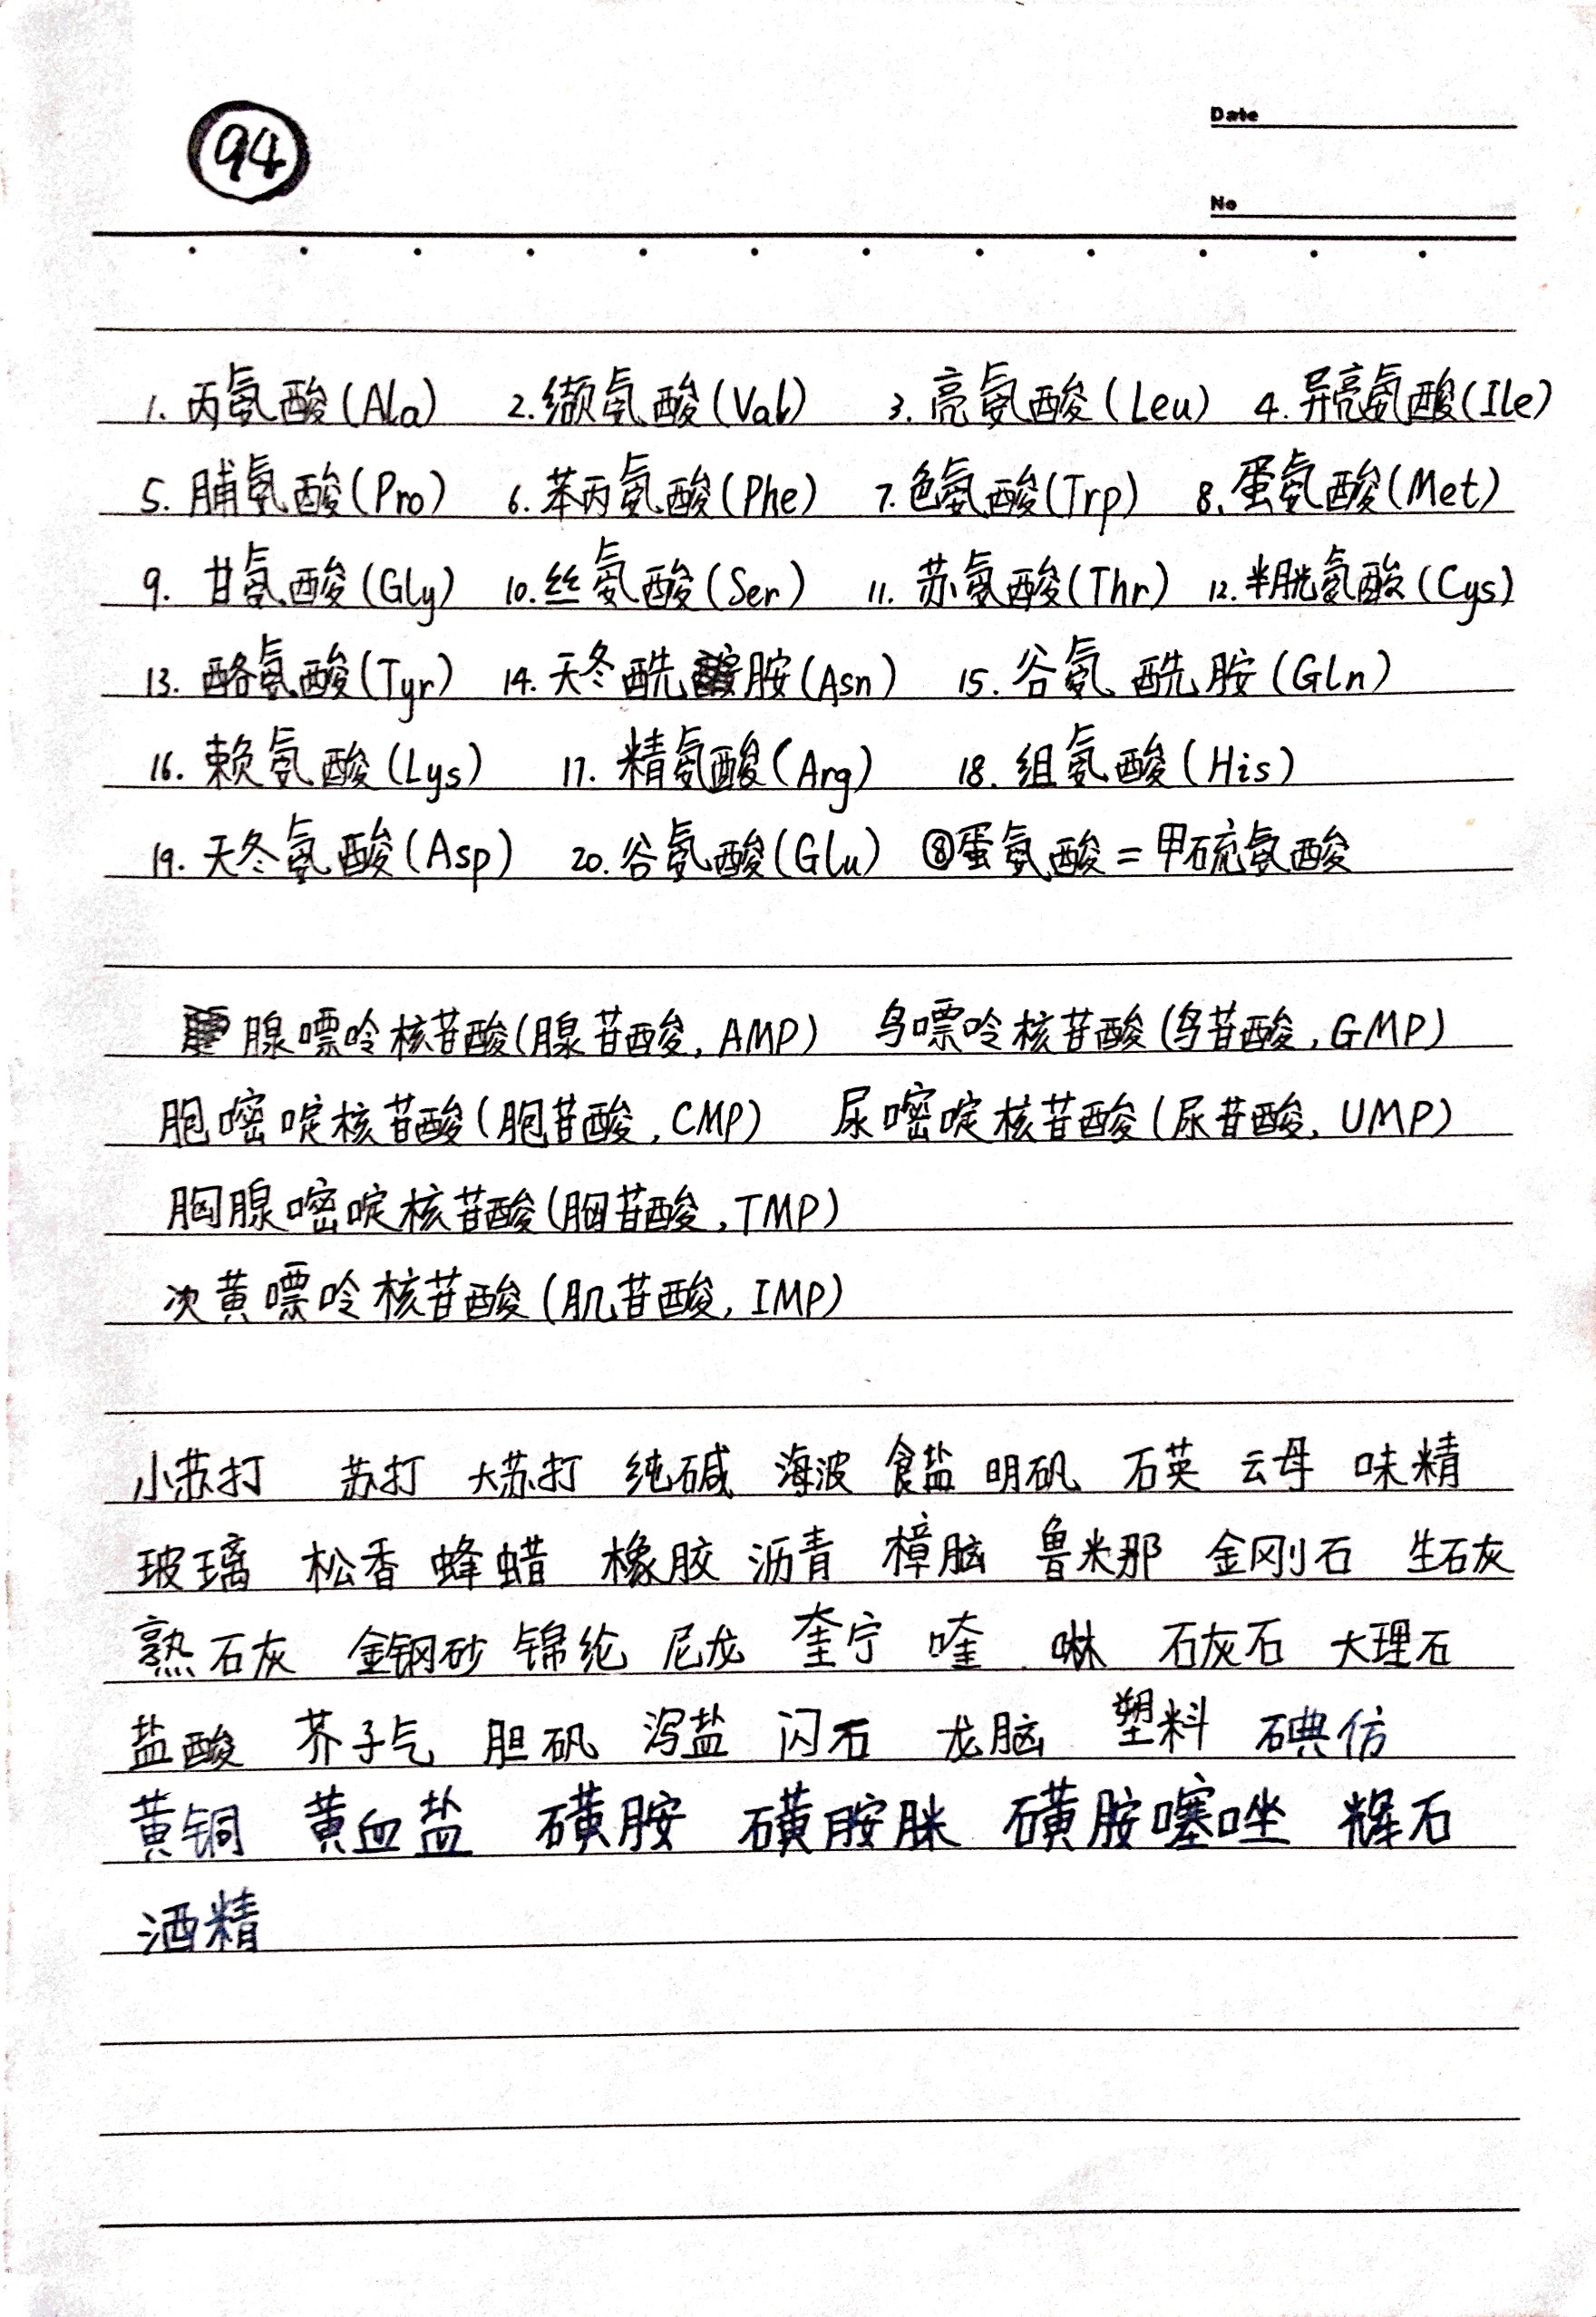 94
Date
No
1. 丙氨酸(Ala) 2. 缬氨酸(Val) 3. 亮氨酸(Leu) 4. 异亮氨酸(Ile)
5. 脯氨酸(Pro) 6. 苯丙氨酸(Phe) 7. 色氨酸(Trp) 8. 蛋氨酸(Met)
9. 甘氨酸(Gly) 10. 丝氨酸(Ser) 11. 苏氨酸(Thr) 12. 半胱氨酸(Cys)
13. 酪氨酸(Tyr) 14. 天冬酰胺(Asn) 15. 谷氨酰胺(Gln)
16. 赖氨酸(Lys) 17. 精氨酸(Arg) 18. 组氨酸(His)
19. 天冬氨酸(Asp) 20. 谷氨酸(Glu) ⑧蛋氨酸=甲硫氨酸
腺嘌呤核苷酸(腺苷酸, AMP) 鸟嘌呤核苷酸(鸟苷酸, GMP)
胞嘧啶核苷酸(胞苷酸, CMP) 尿嘧啶核苷酸(尿苷酸, UMP)
胸腺嘧啶核苷酸(胸苷酸, TMP)
次黄嘌呤核苷酸(肌苷酸, IMP)
小苏打 苏打 大苏打 纯碱 海波 食盐 明矾 石英 云母 味精
玻璃 松香 蜂蜡 橡胶 沥青 樟脑 鲁米那 金刚石 生石灰
熟石灰 金钢砂 锦纶 尼龙 奎宁 喹 啉 石灰石 大理石
盐酸 芥子气 胆矾 泻盐 闪石 龙脑 塑料 碘仿
黄铜 黄血盐 磺胺 磺胺脒 磺胺噻唑 辉石
酒精